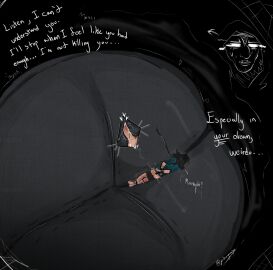 Listen, I can't
understand you.
I'll stop when I feel like you had
enough... I'm not killing you...
Especially in
your dream,
weirdo...